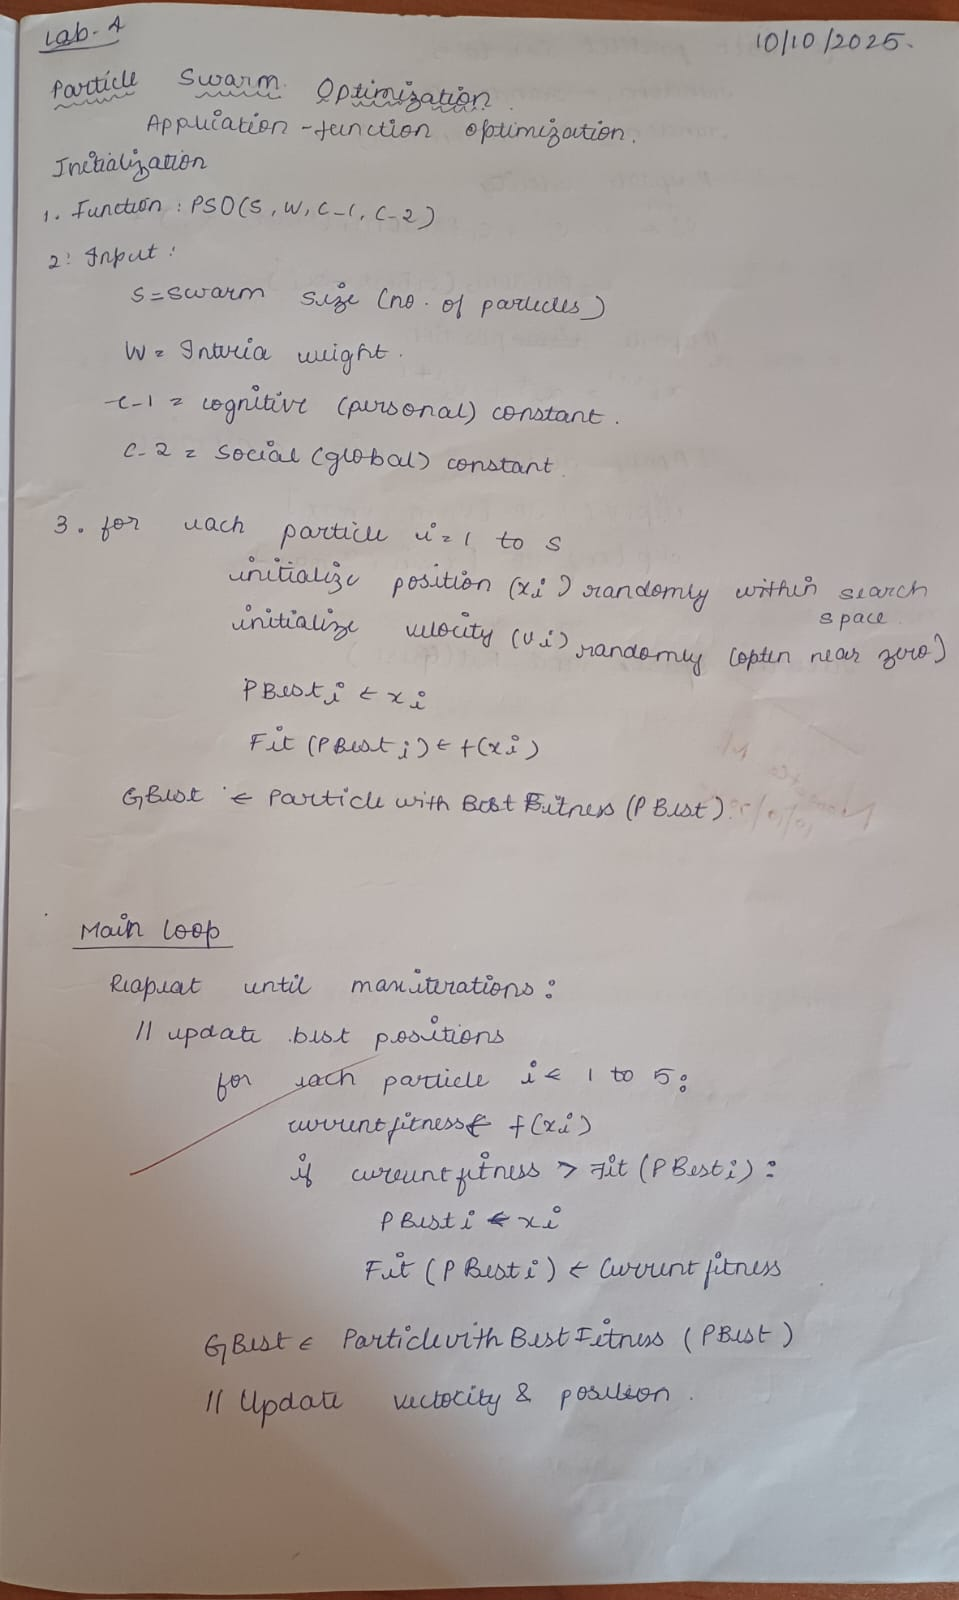 Lab-4
10/10/2025.
Particle Swarm Optimization.
Application - function optimization.
Initialization
1. Function : PSO(S, W, C-1, C-2)
2: Input :
S = swarm size (no. of particles)
W = Interia weight.
C-1 = cognitive (personal) constant.
C-2 = Social (global) constant.
3. for each particle i = 1 to S
initialize position (xi) randomly within search space.
initialize velocity (vi) randomly (opten near zero)
PBest i ← xi
Fit (PBest i) ← f(xi)
GBest ← Particle with Best Fitness (PBest).
Main Loop
Reapeat until maxiterations :
// update best positions
for each particle i ← 1 to S :
currentfitness ← f(xi)
if currentfitness > Fit (PBesti) :
PBesti ← xi
Fit (PBesti) ← Currentfitness
GBest ← ParticlewithBestFitness (PBest)
// Update vectocity & position.